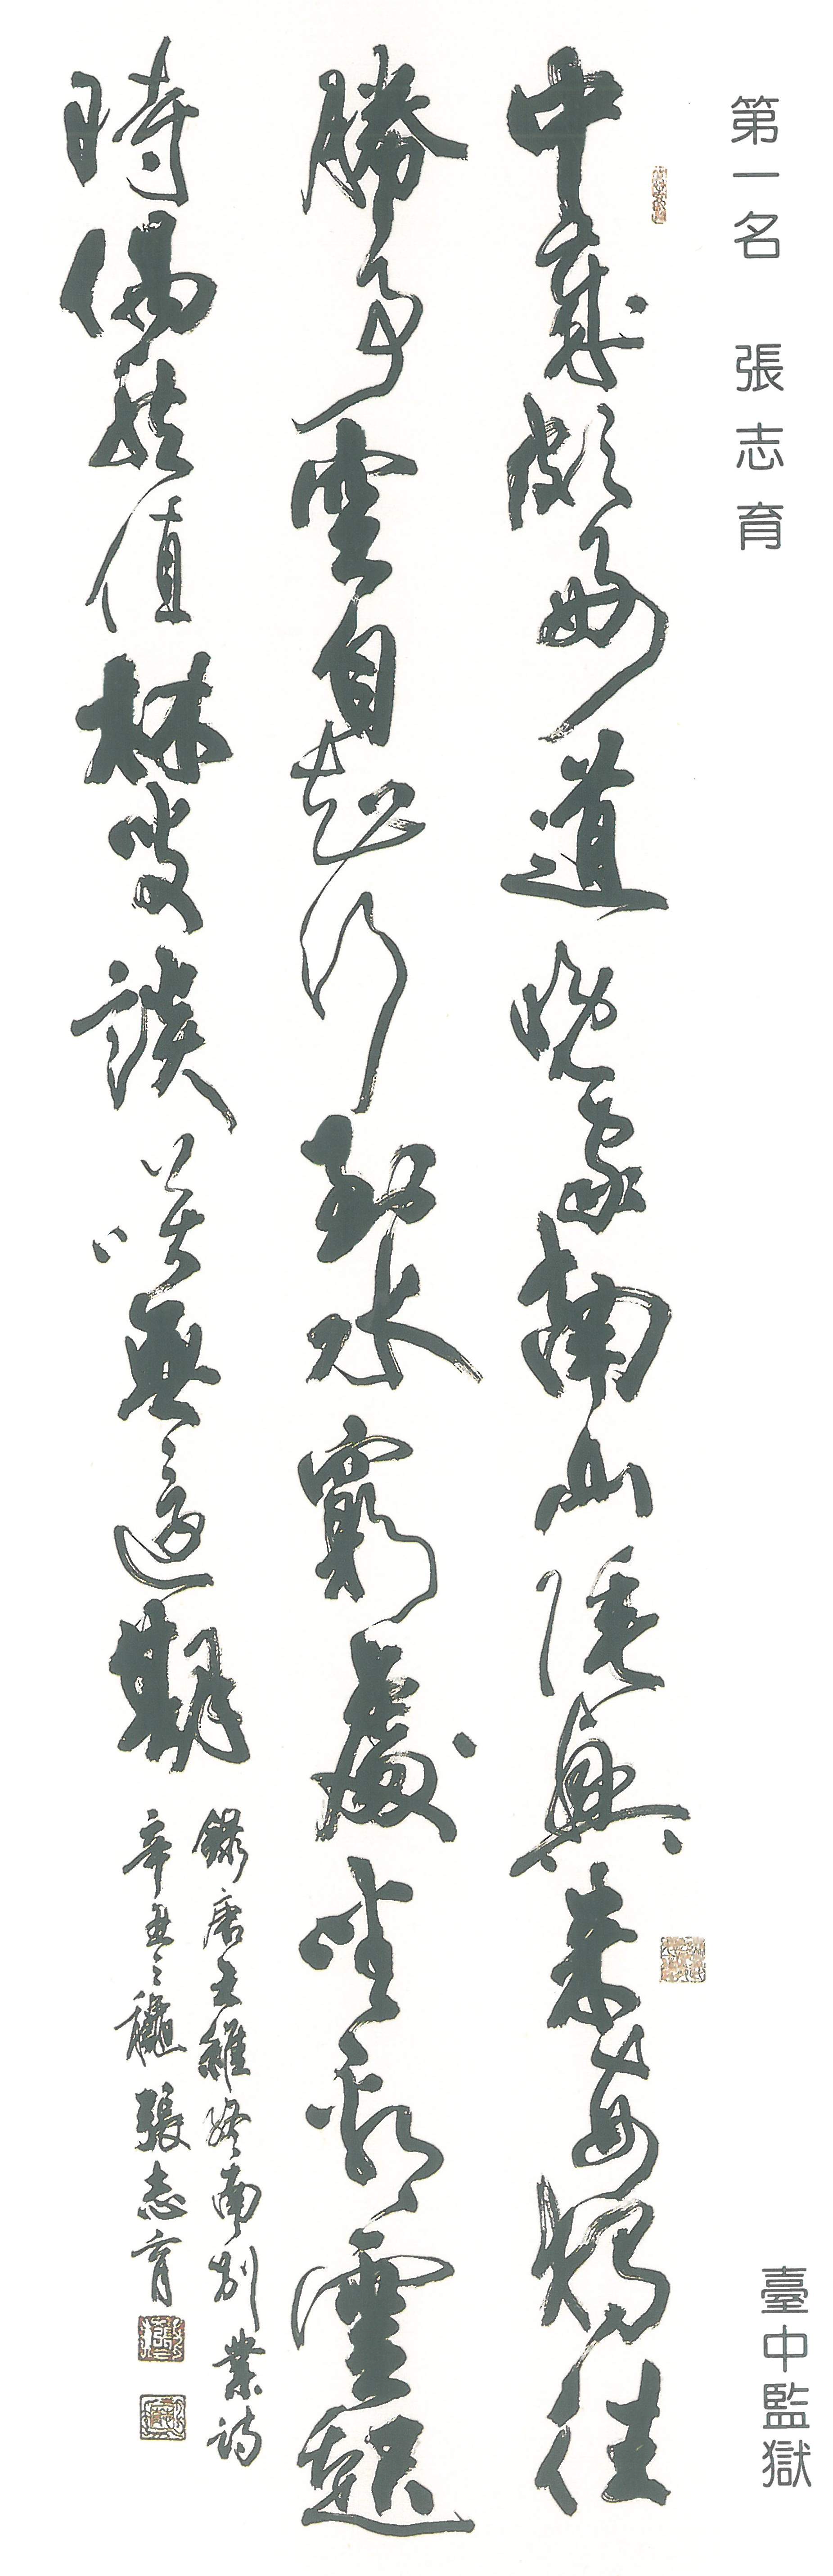 第一名 張志育
臺中監獄
中歲頗好道晚家南山陲興來每獨往
勝事空自知行到水窮處坐看雲起
時偶然值林叟談笑無還期
錄唐王維終南別業詩
辛丑之穐張志育